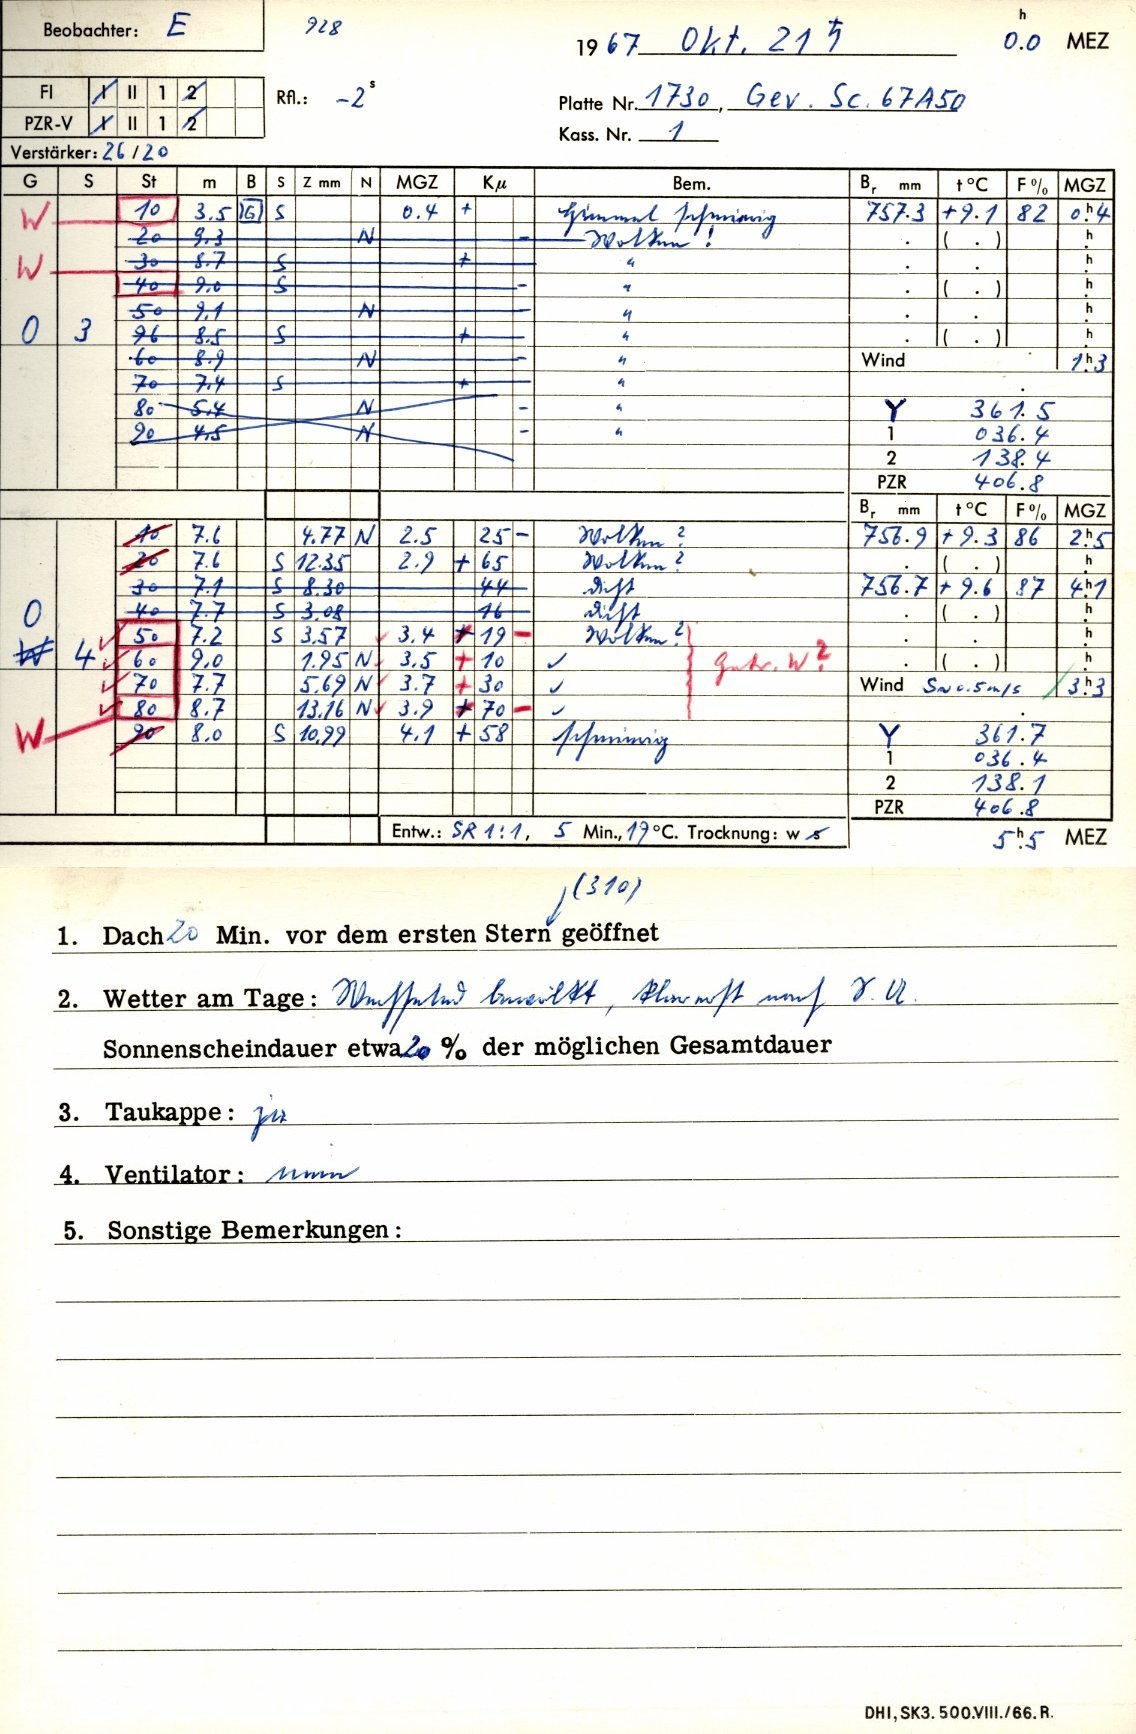 Beobachter: E 928 1967 Okt. 21 ♄ 0.0 h MEZ
FI I II 1 2 Rfl.: -2 s Platte Nr. 1730, Gev. Sc. 67A50
PZR-V I II 1 2 Kass. Nr. 1
Verstärker: 26/20
G S St m B S Z mm N MGZ Kμ Bem. Br mm t °C F % MGZ
W 10 3.5 G S 0.4 + Himmel schmierig 757.3 +9.1 82 0.h4
20 9.3 N - Wolken! . ( . ) h
W 30 8.7 S + " . . h
40 9.0 S - " . ( . ) h
50 9.1 N " . . h
0 3 96 8.5 S + " . ( . ) h
60 8.9 N - " Wind 1.h3
70 7.4 S + "
80 5.4 N - " Y 361.5
90 4.5 N - " 1 036.4
2 138.4
PZR 406.8
Br mm t °C F % MGZ
10 7.6 4.77 N 2.5 25 - Wolken? 756.9 +9.3 86 2.h5
20 7.6 S 12.35 2.9 + 65 Wolken? . ( . ) h
30 7.1 S 8.30 44 dicht 756.7 +9.6 87 4.h1
0 40 7.7 S 3.08 16 dicht . ( . ) h
W 4 50 7.2 S 3.57 3.4 + 19 - Wolken? . . h
60 9.0 1.95 N 3.5 + 10 ✓ W? . ( . ) h
70 7.7 5.69 N 3.7 + 30 ✓ Wind S~0.5m/s 3.h3
80 8.7 13.16 N 3.9 + 70 - ✓
W 90 8.0 S 10.99 4.1 + 58 schmierig Y 361.7
1 036.4
2 138.1
PZR 406.8
Entw.: SR 1:1, 5 Min., 19 °C. Trocknung: w s 5.h5 MEZ
(310)
1. Dach 20 Min. vor dem ersten Stern geöffnet
2. Wetter am Tage: Wechselnd bewölkt, klar erst nach S.U.
Sonnenscheindauer etwa 20 % der möglichen Gesamtdauer
3. Taukappe: ja
4. Ventilator: nein
5. Sonstige Bemerkungen:
DHI, SK3. 500.VIII./66. R.